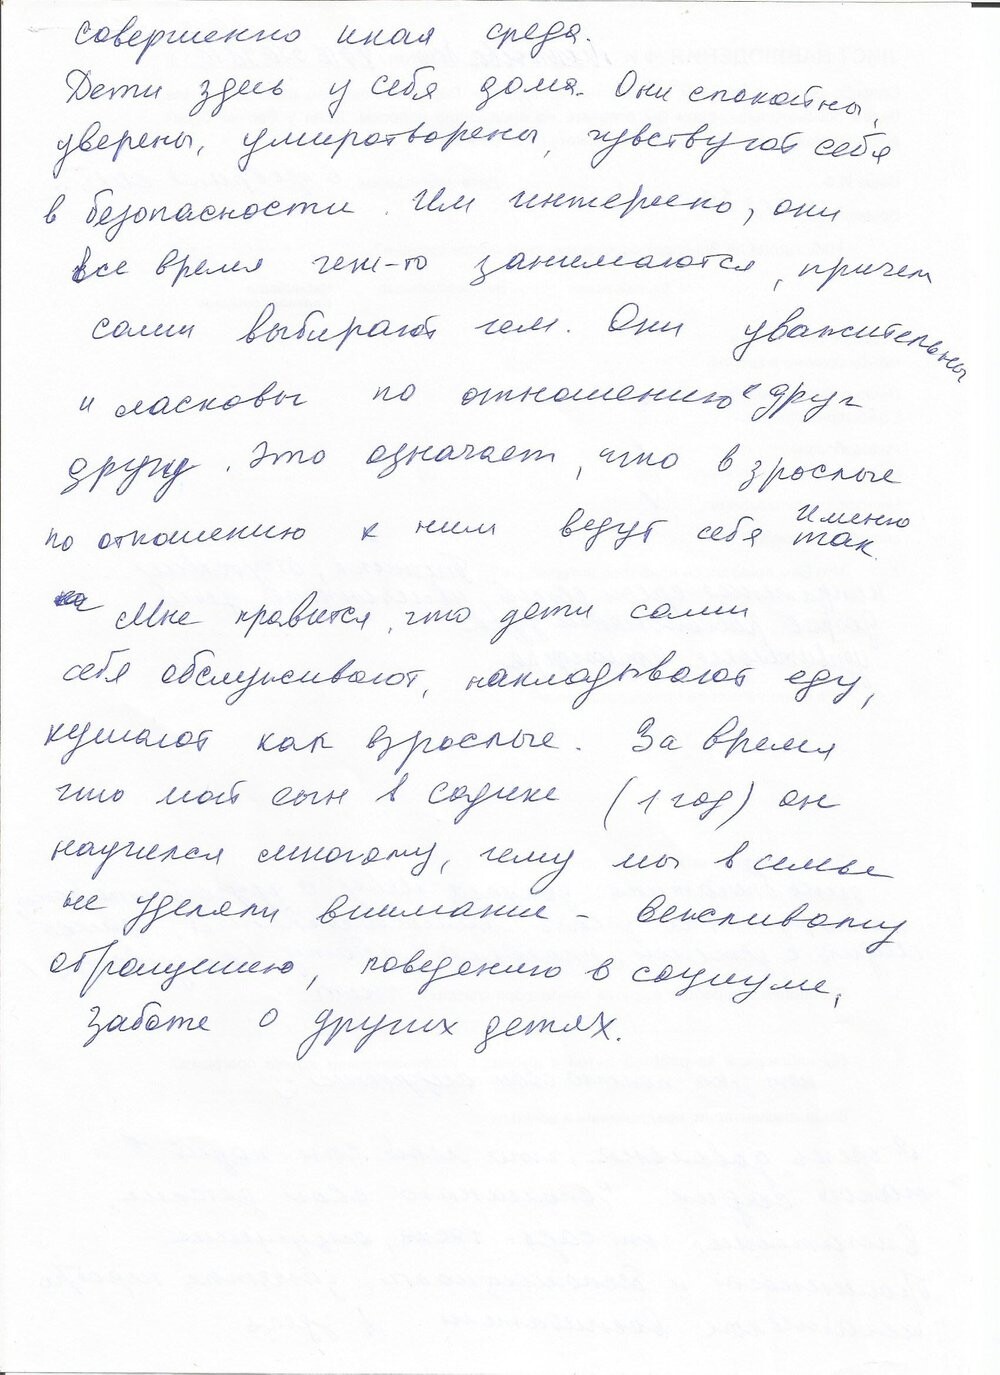 совершенно иная среда.
Дети здесь у себя дома. Они спокойны,
уверены, умиротворены, чувствуют себя
в безопасности. Им интересно, они
все время чем-то занимаются, причем
сами выбирают чем. Они уважительны
и ласковы по отношению к друг
другу. Это означает, что взрослые
по отношению к ним ведут себя именно
так.
Мне нравится, что дети сами
себя обслуживают, накладывают еду,
кушают как взрослые. За время
что мой сын в садике (1 год) он
научился многому, чему мы в семье
не уделяли внимание - вежливому
обращению, поведению в социуме,
заботе о других детях.